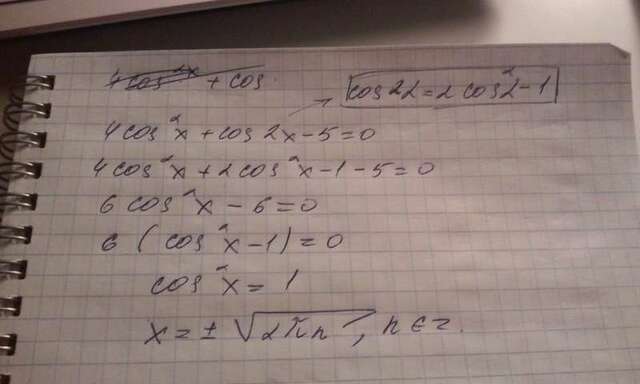 4cos²x + cos
cos2α = 2cos²α - 1
4cos²x + cos2x - 5 = 0
4cos²x + 2cos²x - 1 - 5 = 0
6cos²x - 6 = 0
6(cos²x - 1) = 0
cos²x = 1
x = ± √2πn, n ∈ z.